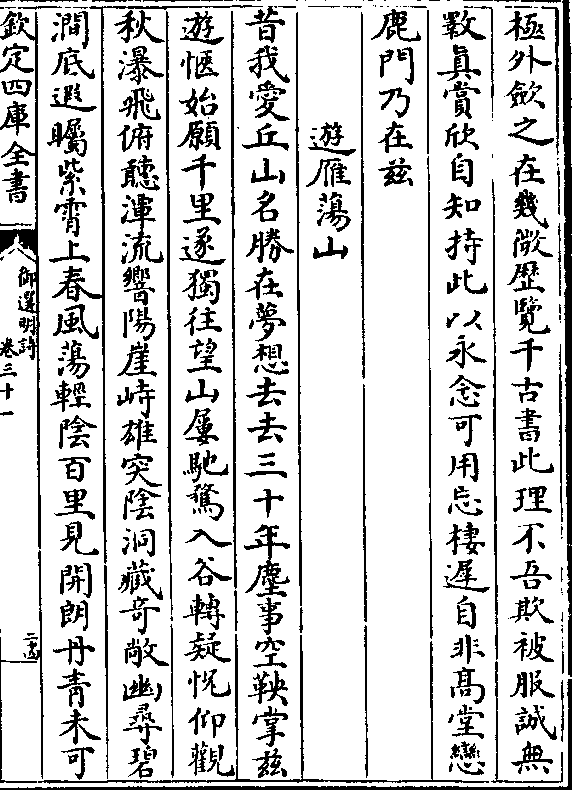 極外斂之在幾微歴覽千古書此理不吾欺被服誠無
斁真賞欣自知持此以永念可用忘棲遲自非髙堂戀
鹿門乃在兹
遊雁蕩山
昔我愛丘山名勝在夢想去去三十年塵事空鞅掌兹
遊愜始願千里遂獨往望山屢馳騖入谷轉疑怳仰觀
秋瀑飛俯聽渾流響陽崖峙雄突陰洞藏竒敞幽尋碧
澗底遐矚紫霄上春風蕩輕陰百里見開朗丹青未可
欽定四庫全書
御選明詩
卷三十一
二